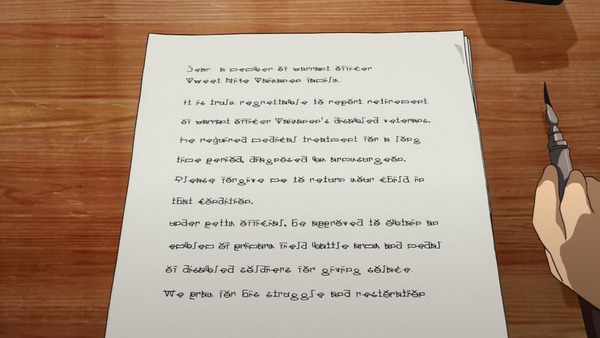 Dear a member of warrant officer
family.
It is truly regrettable to report retirement
of warrant officer disabled veteran.
He required medical treatment for a long
time period, diagnosed by
Please forgive me to return your child in
that condition.
under petty official, he approved to obtain an
emblem of field battle and medal
of disabled soldiers for giving solace.
We pray for his struggle and restoration.